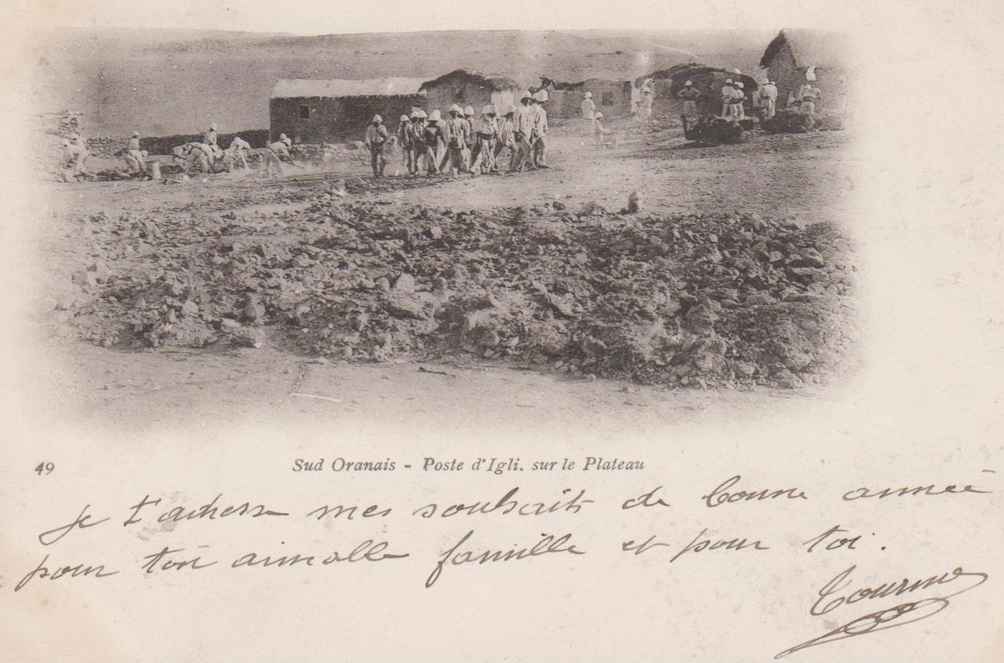 49
Sud Oranais - Poste d'Igli. sur le Plateau
Je t'adresse mes souhaits de bonne année
pour ton aimable famille et pour toi.